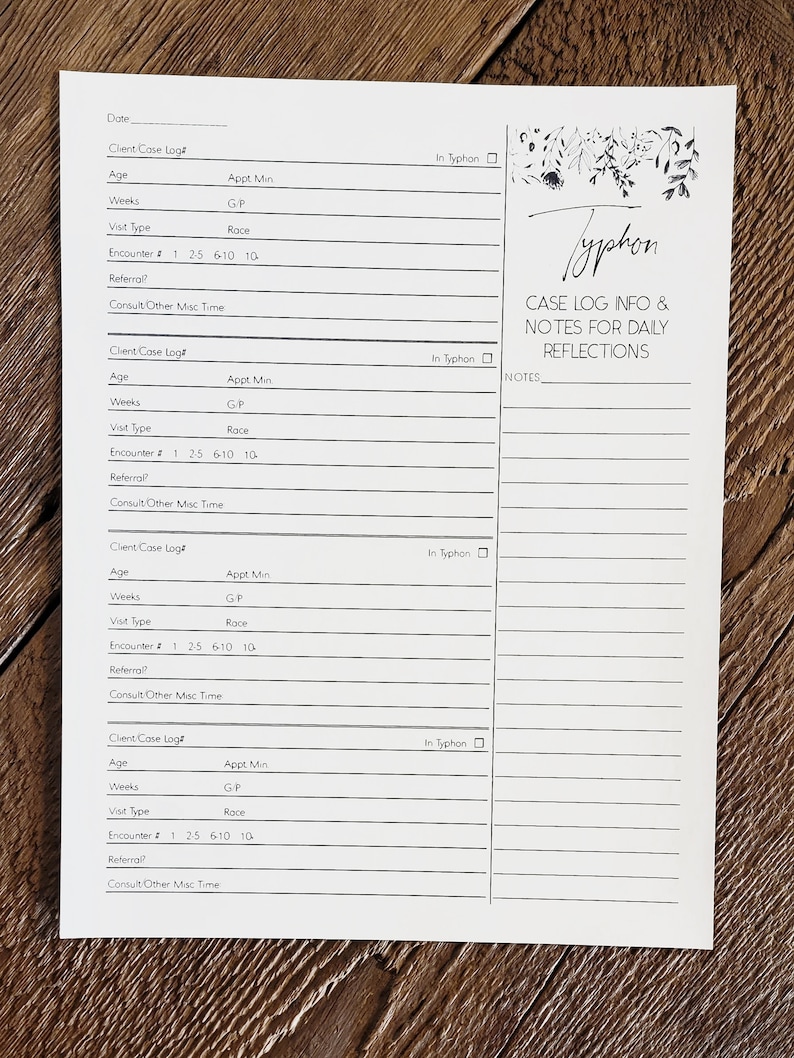 Date
Client/Case Log# In Typhon
Age Appt. Min.
Weeks G/P
Visit Type Race
Encounter # 1 2-5 6-10 10+
Referral?
Consult/Other Misc Time:
Client/Case Log# In Typhon
Age Appt. Min.
Weeks G/P
Visit Type Race
Encounter # 1 2-5 6-10 10+
Referral?
Consult/Other Misc Time:
Client/Case Log# In Typhon
Age Appt. Min.
Weeks G/P
Visit Type Race
Encounter # 1 2-5 6-10 10+
Referral?
Consult/Other Misc Time:
Client/Case Log# In Typhon
Age Appt. Min.
Weeks G/P
Visit Type Race
Encounter # 1 2-5 6-10 10+
Referral?
Consult/Other Misc Time:
Typhon
CASE LOG INFO &
NOTES FOR DAILY
REFLECTIONS
NOTES